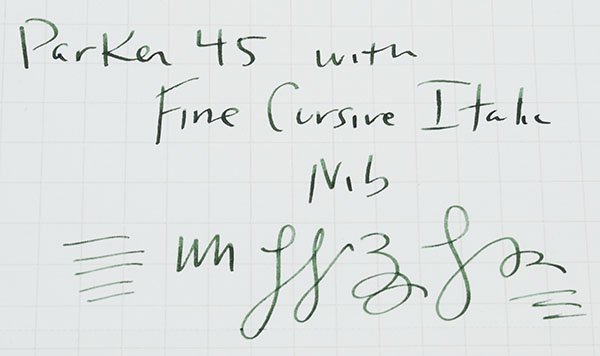 Parker 45 with
Fine Cursive Italic
Nib